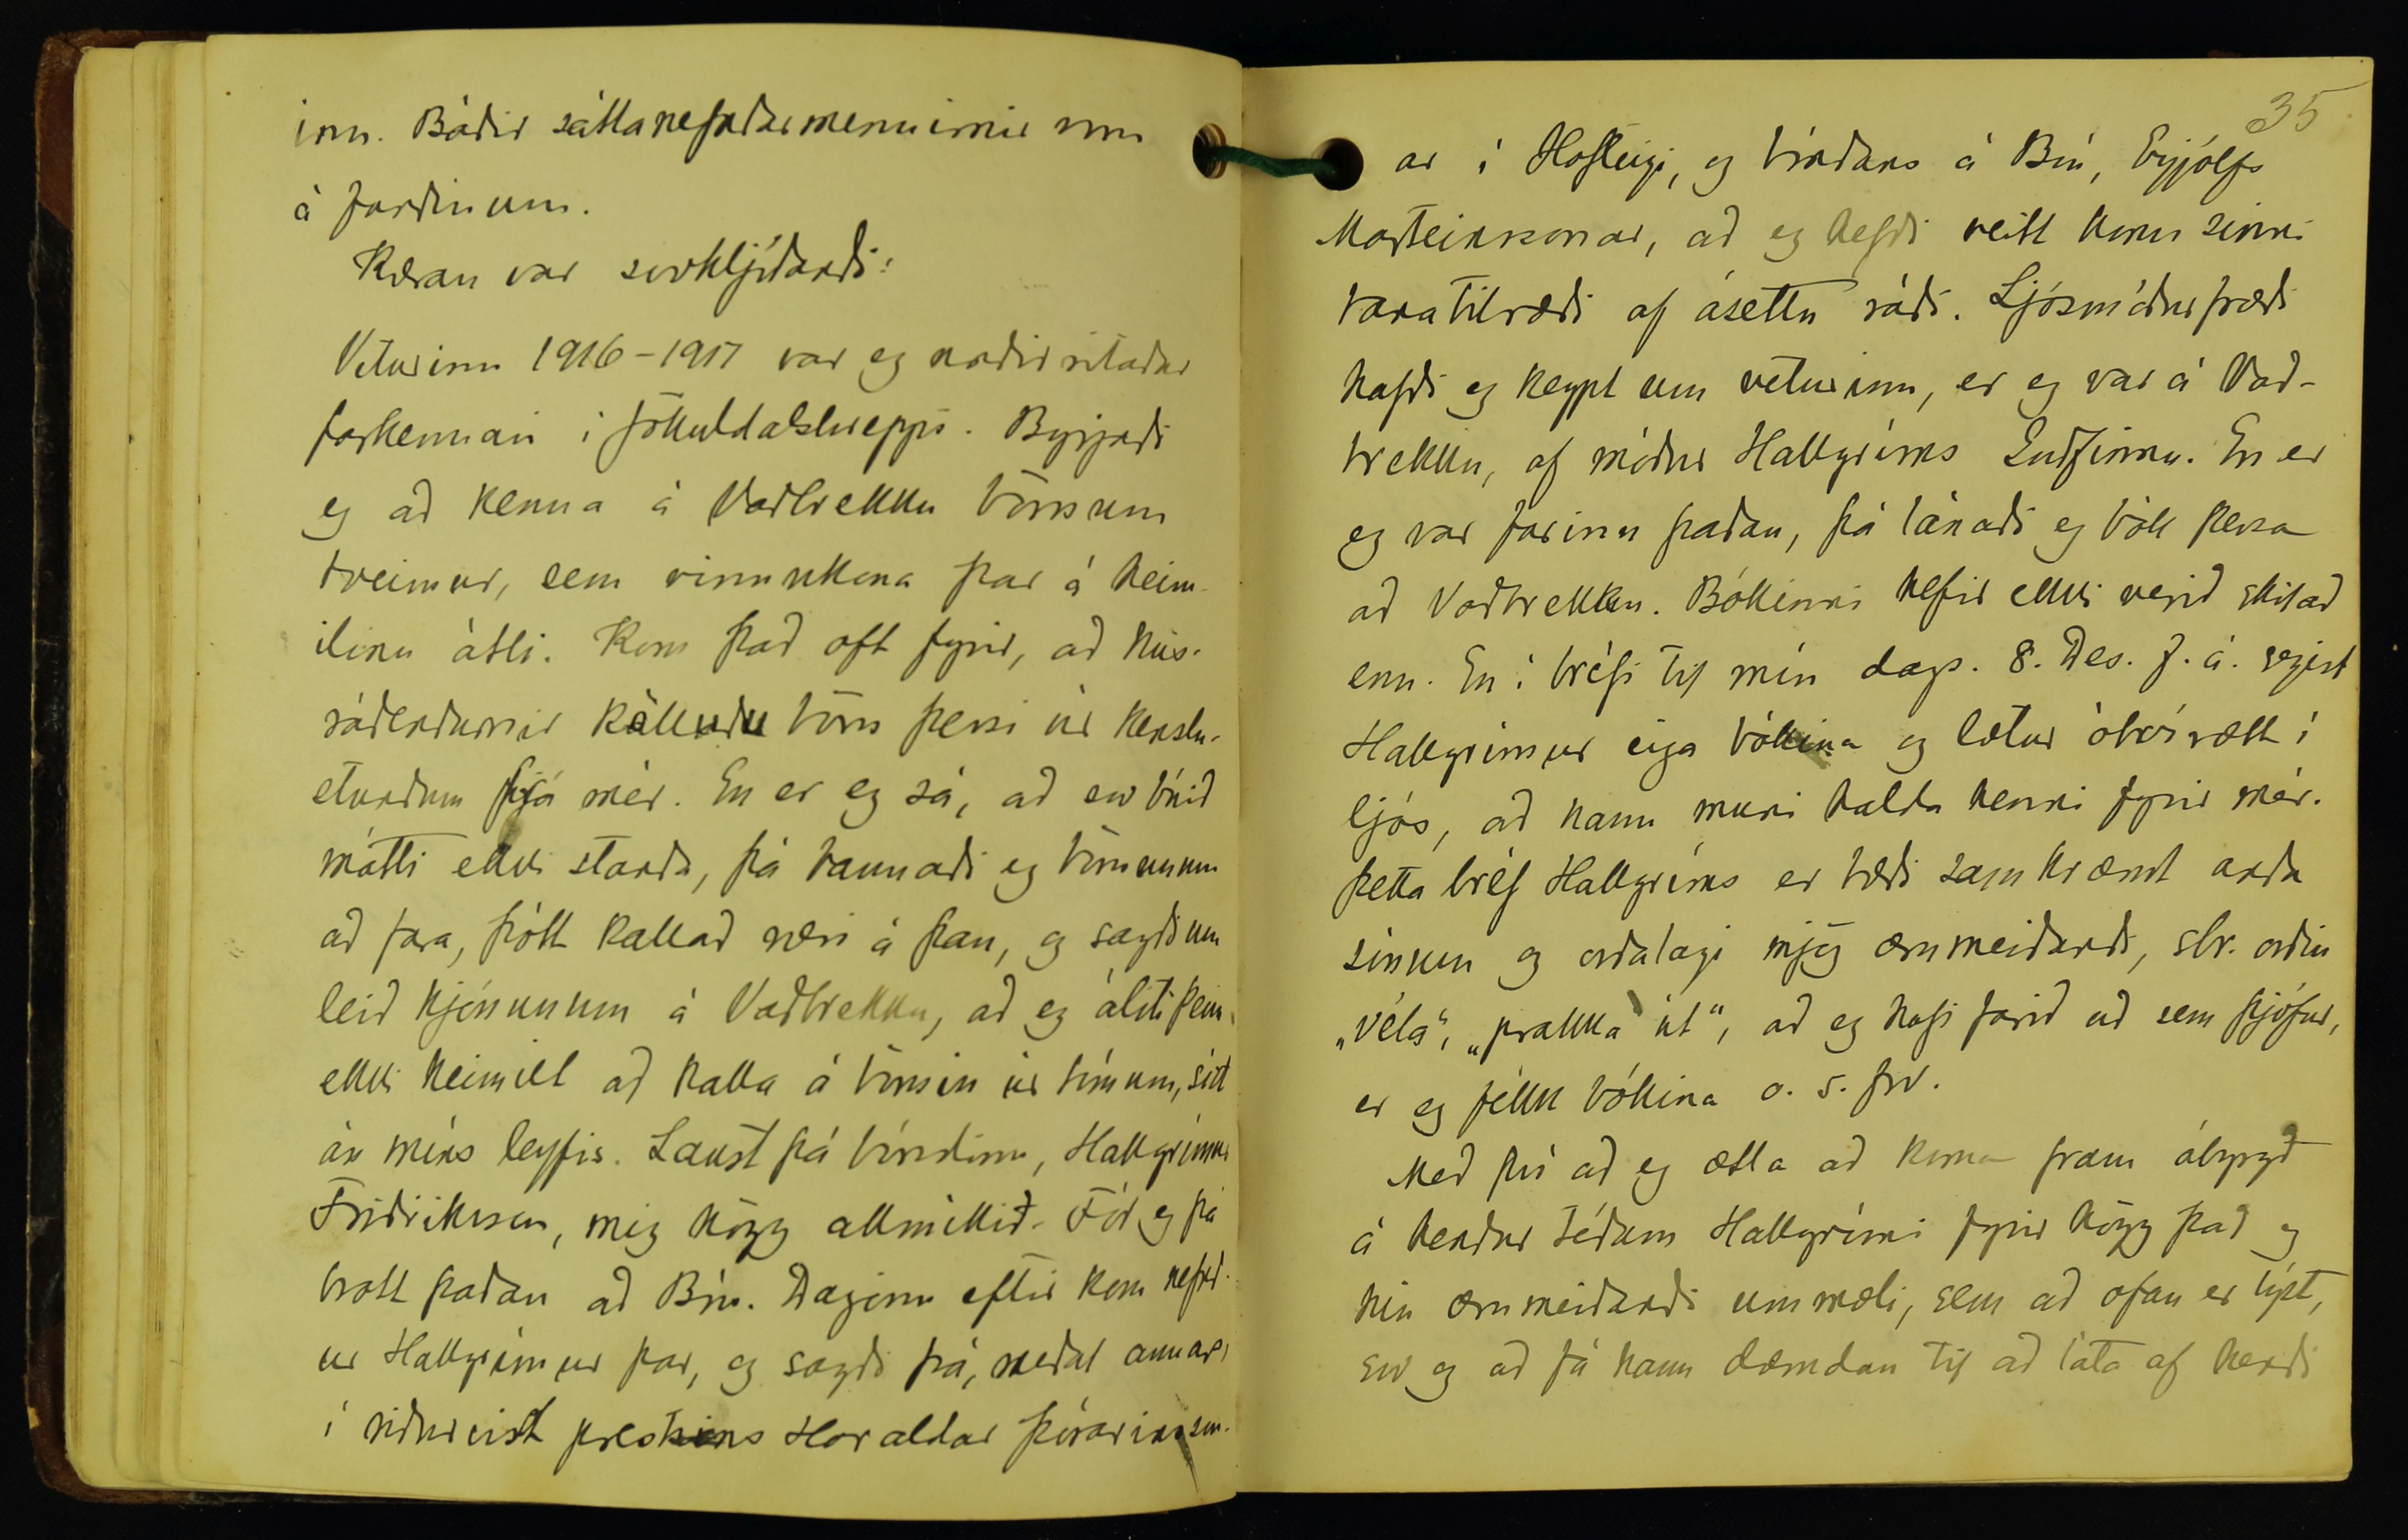 inn. Báðir sáttanefndarmennirnir voru
á fundinum.
Kæran var svohljóðandi:
Veturinn 1916-1917 var eg undirritaður
farkennari í Jökuldalshreppi. Byrjaði
eg að kenna á Vaðbrekku börnum
tveimur, sem vinnukona þar á heim-
ilinu átti. Kom það oft fyrir, að hús-
ráðendurnir kölluðu börn þessi úr kenslu-
stundum hjá mér. En er eg sá, að svo búið
mátti ekki standa, þá bannaði eg börnunum
að fara, þótt kallað væri á þau, og sagði um
leið hjónunum á Vaðbrekku, að eg áliti þeim
ekki heimilt að kalla á börnin úr tímum, síst
án míns leyfis. Laust þá bóndinn, Hallgrímur
Friðriksson, mig högg allmikið. Fór eg þá
brott þaðan að Brú. Daginn eftir kom nefnd-
ur Hallgrímur þar, og sagði frá, meðal annars
í viðurvist prestsins Haraldar Þórarinsson-
35
ar í Hofteigi, og bóndans á Brú, Eyjólfs
Marteinssonar, að eg hefði veitt konu sinni
banatilræði af ásettu ráði. Ljósmóðurfræði
hafði eg keypt um veturinn, er eg var á Vað-
brekku, af móður Hallgríms Guðfinnu. En er
eg var farinn þaðan, þá lánaði eg bók þessa
að Vaðbrekku. Bókinni hefir ekki verið skilað
enn. En í bréfi til mín dags. 8. Des. f. á. segist
Hallgrímur eiga bókina og lætur ótvírætt í
ljós, að hann muni halda henni fyrir mér.
Þetta bréf Hallgríms er bæði samkvæmt anda
sínum og orðalagi mjög ærumeiðandi, sbr. orðin
„véla", „prakka út", að eg hafi farið að sem þjófur,
er eg fékk bókina o. s. frv.
Með því að eg ætla að koma fram ábyrgð
á hendur téðum Hallgrími fyrir högg það og
hin ærumeiðandi ummæli, sem að ofan er lýst,
svo og að fá hann dæmdan til að láta af hendi